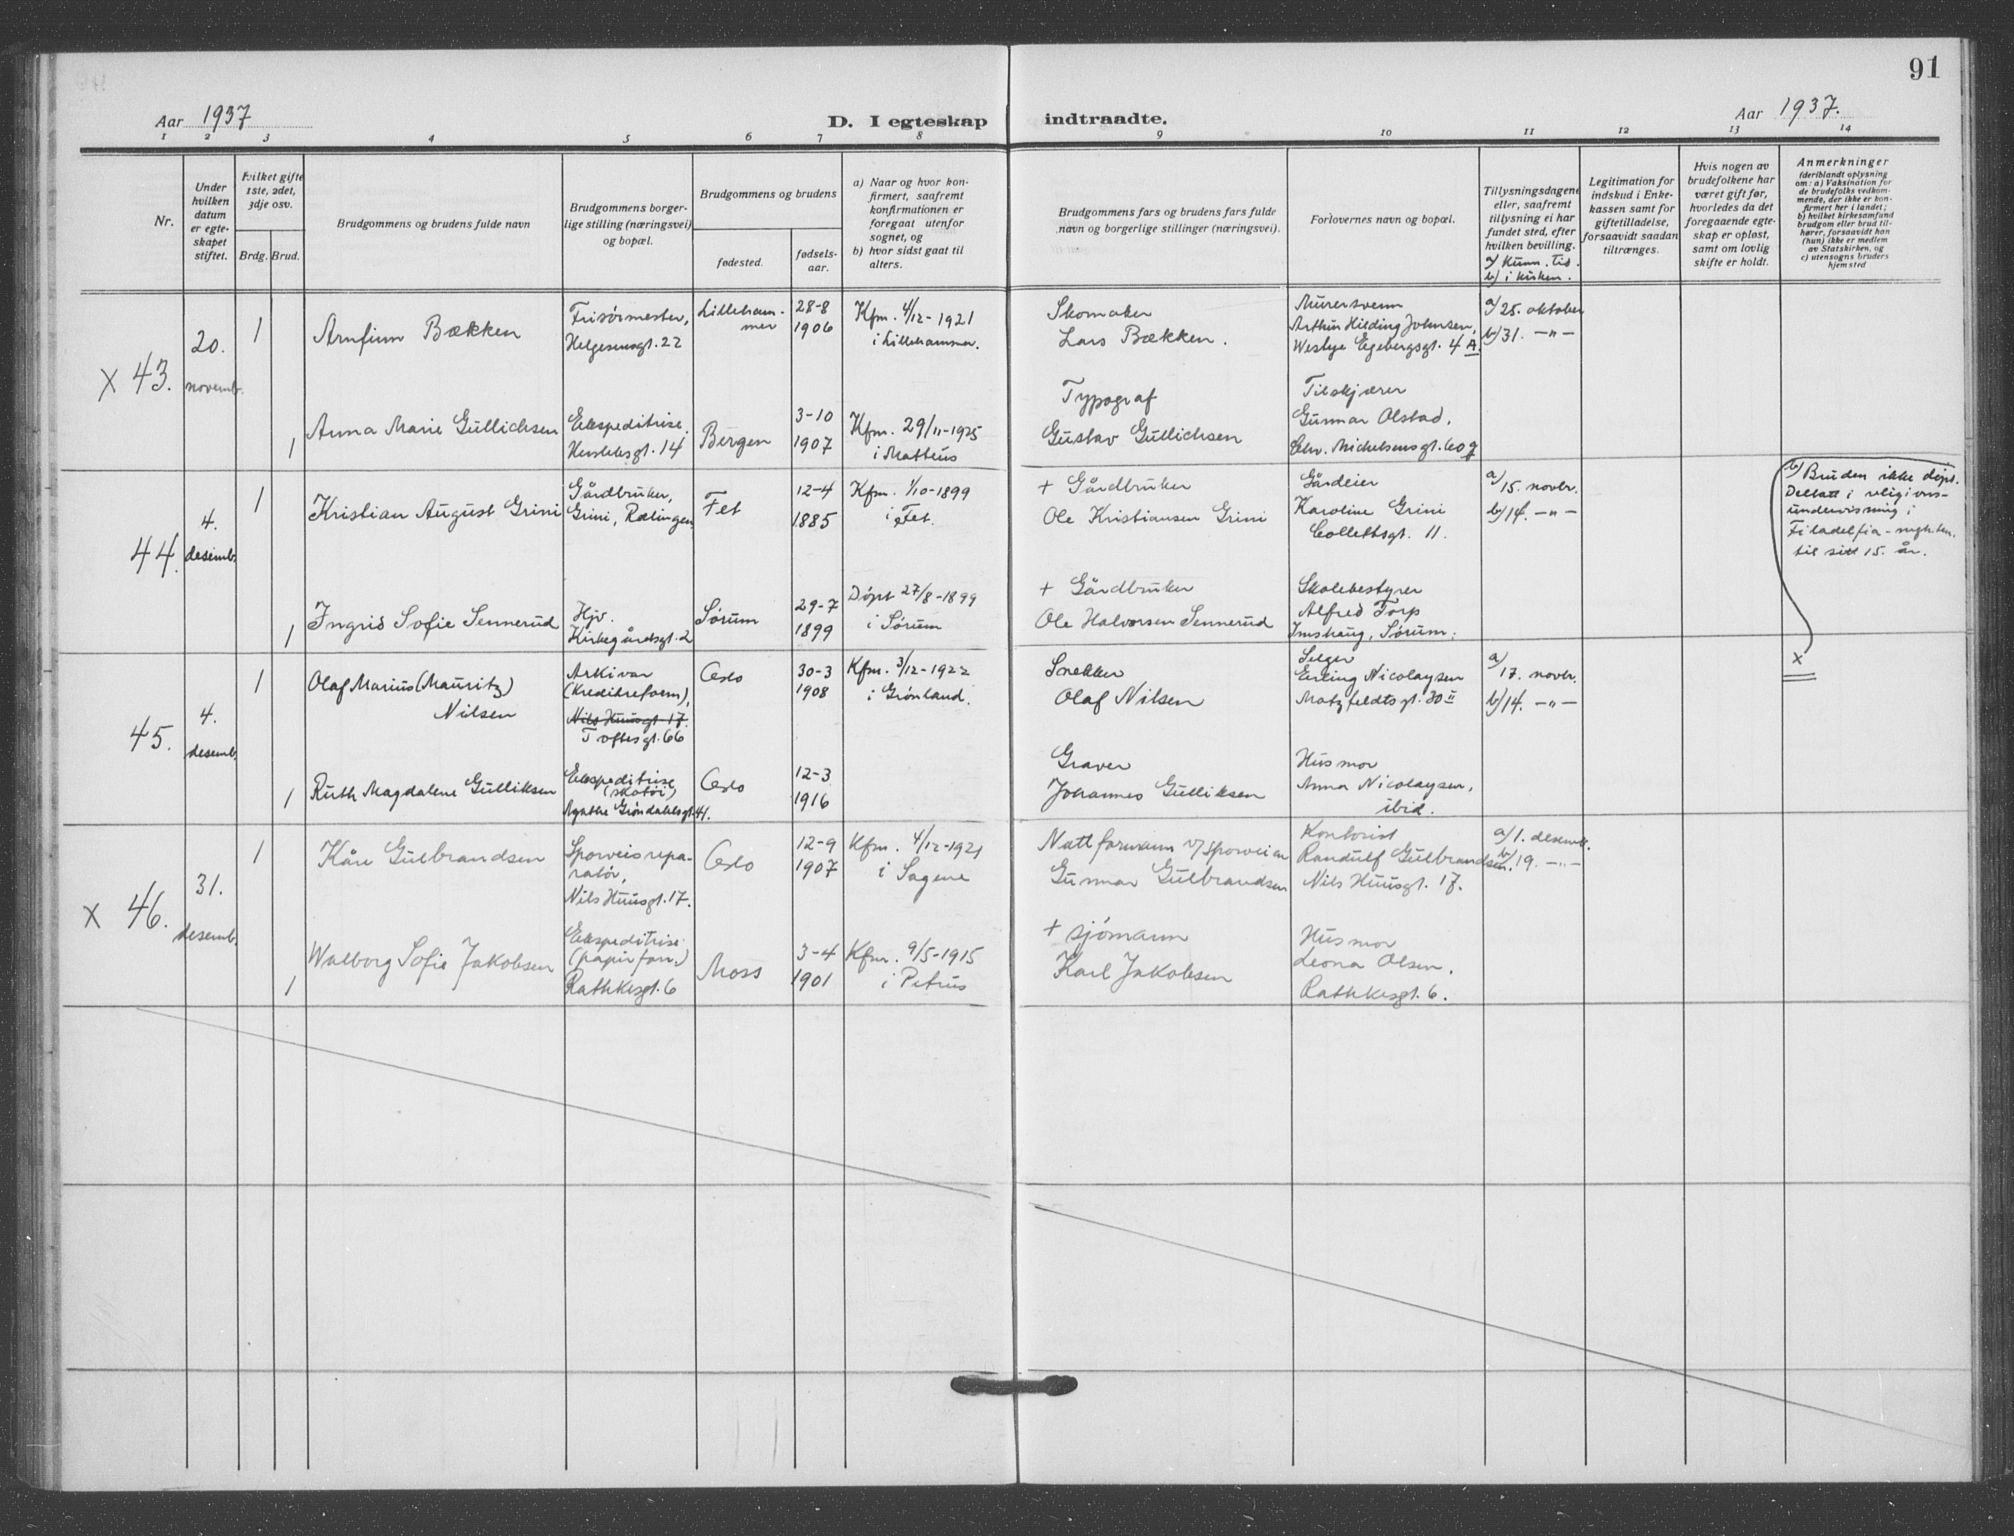 91
Aar 1937
D. I egteskap indtraadte.
Aar 1937.
1 2 3 4 5 6 7 8 9 10 11 12 13 14
Nr.
Under hvilken datum er egteskapet stiftet.
Hvilket gifte 1ste, 2det, 3dje osv.
Brdg. Brud.
Brudgommens og brudens fulde navn
Brudgommens borgerlige stilling (næringsvei) og bopæl.
Brudgommens og brudens
fødested.
fødselsaar.
a) Naar og hvor konfirmert, saafremt konfirmationen er foregaat utenfor sognet, og
b) hvor sidst gaat til alters.
Brudgommens fars og brudens fars fulde navn og borgerlige stillinger (næringsvei).
Forlovernes navn og bopæl.
Tillysningsdagene eller, saafremt tillysning ei har fundet sted, efter hvilken bevilling.
a) Kunn. tid.
b) i kirken.
Legitimation for indskud i Enkekassen samt for giftetilladelse, forsaavidt saadan tiltrænges.
Hvis nogen av brudefolkene har været gift før, hvorledes da det foregaaende egteskap er opløst, samt om lovlig skifte er holdt.
Anmerkninger
(deriblandt oplysning om: a) Vaksination for de brudefolks vedkommende, der ikke er konfirmert her i landet;
b) hvilket kirkesamfund brudgom eller brud tilhører, forsaavidt han (hun) ikke er medlem av Statskirken, og
c) utensogns bruders hjemsted
x 43.
20. novemb.
1
Arnfinn Bækken
Frisørmester,
Helgesensgt. 22
Lillehammer
28-8
1906
Kfm. 4/12-1921
i Lillehammer.
Skomaker
Lars Bækken.
Murersvenn
Arthur Hilding Johnsen,
Westye Egebergsgt. 4 A.
a/ 25. oktober
b/ 31. -"-
1
Anna Marie Gullichsen
Ekspeditrise,
Herslebsgt. 14
Bergen
3-10
1907
Kfm. 29/11-1925
i Matteus
Typograf
Gustav Gullichsen
Tilskjærer
Gunnar Olstad,
Chr. Michelsensgt. 60 g
44.
4. desemb.
1
Kristian August Grini
Gårdbruker,
Grini, Rælingen
Fet
12-4
1885
Kfm. 1/10-1899
i Fet.
+ Gårdbruker
Ole Kristiansen Grini
Gårdeier
Karoline Grini
Collettsgt. 11.
a/ 15. novbr.
b/ 14. -"-
b/ Bruden ikke døpt.
Deltatt i religions-
undervisning i
Filadelfia-mgheten.
til sitt 15. år.
1
Ingrid Sofie Sennerud
Hjv.
Kirkegårdsgt. 2
Sørum
29-7
1899
Døpt 27/8-1899
i Sørum
+ Gårdbruker
Ole Halvorsen Sennerud
Skolebestyrer
Alfred Torp
Imshaug, Sørum.
45.
4. desemb.
1
Olaf Marius (Mauritz)
Nilsen
Arkivar
(Kreditreform),
Nils Huusgt. 17.
Toftesgt. 66
Oslo
30-3
1908
Kfm. 3/12-1922
i Grønland.
Snekker
Olaf Nilsen
Selger
Erling Nicolaysen
Motzfeldtsgt. 30 II
a/ 17. novbr.
b/ 14. -"-
x
1
Ruth Magdalene Gulliksen
Ekspeditrise
(skotøi)
Agathe Grøndahlsgt. 41.
Oslo
12-3
1916
Graver
Johannes Gulliksen
Husmor
Anna Nicolaysen,
ibid.
x 46.
31. desemb.
1
Kåre Gulbrandsen
Sporveisrepa-
ratør,
Nils Huusgt. 17.
Oslo
12-9
1907
Kfm. 4/12-1921
i Sagene
Nattformann v/sporveien
Gunnar Gulbrandsen
Kontorist
Randulf Gulbrandsen.
Nils Huusgt. 17.
a/ 1. desemb.
b/ 19. -"-
1
Walborg Sofie Jakobsen
Ekspeditrise
(papirforr.)
Rathkesgt. 6
Moss
3-4
1901
Kfm. 9/5-1915
i Petrus
+ sjømann
Karl Jakobsen
Husmor
Leona Olsen,
Rathkesgt. 6.